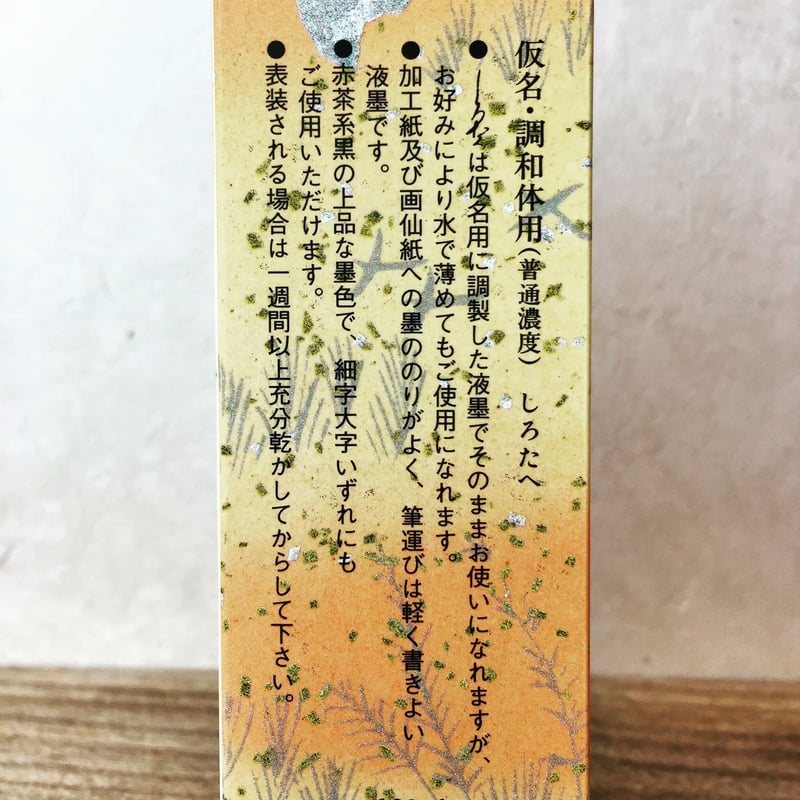 仮名・調和体用(普通濃度) しろたへ
●しろたへは仮名用に調製した液墨でそのままお使いになれますが、
お好みにより水で薄めてもご使用になれます。
●加工紙及び画仙紙への墨ののりがよく、筆運びは軽く書きよい
液墨です。
●赤茶系黒の上品な墨色で、細字大字いずれにも
ご使用いただけます。
●表装される場合は一週間以上充分乾かしてからして下さい。